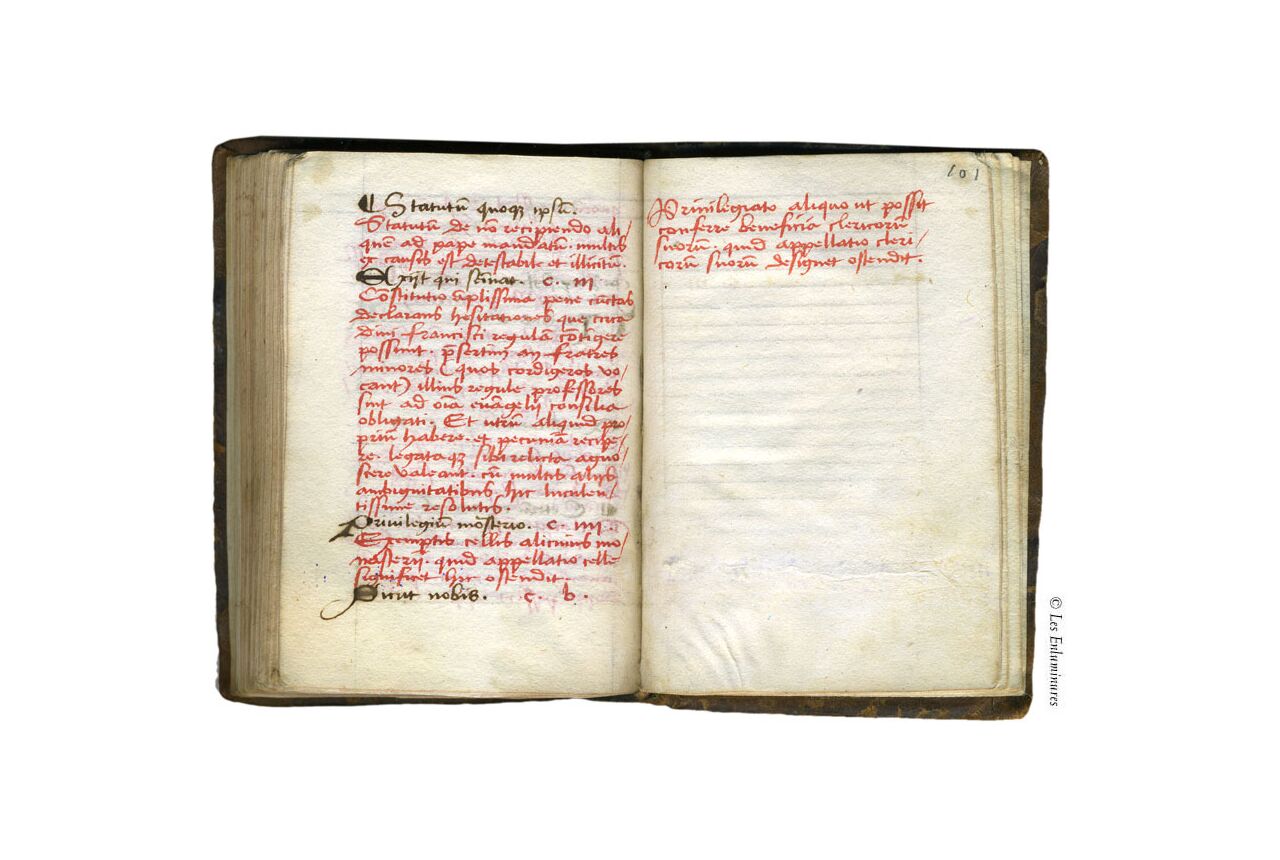 ¶ Statutū quoqȝ ipsū.
Statutū de nō recipiendo ali/
quē ad pape mandatū. multis
ex causis est detestabile et illicitū.
Exijt qui semīat. c. III
Cōstitutio āplissima pene cūctas
declarans hesitationes que circa
diui francisci regulā cōtīgere
possunt. p̄sertim an fratres
minores (quos cordigeros vo/
cant) illius regule professores
sint ad oīa euāgelij consilia
obligati. Et utrū aliquid pro/
priū habere. et pecuniā recipe/
re. legataqȝ sibi relicta agno/
scere valeant. cū multis alijs
ambiguitatibus hic luculen/
tissime resolutis.
Priuilegiū mōsterio. c. IIII.
Exemptis cellis alicuius mo/
nasterij. quid appellatio celle
significet hic ostendit.
Sicut nobis. c. v.
Priuilegiato aliquo ut possit
conferre beneficia clericorū
suorū. quid appellatio cleri/
corū suorū designet ostendit.
101
© Les Enluminures